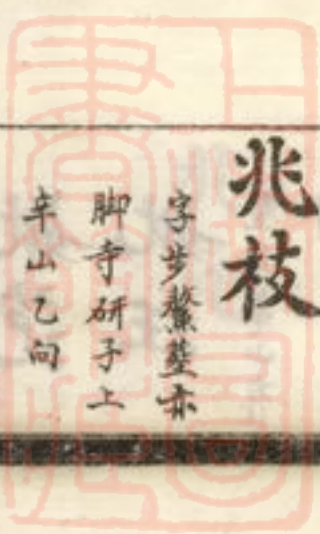 兆枝
字步鰲塟亦
脚寺研子上
辛山乙向